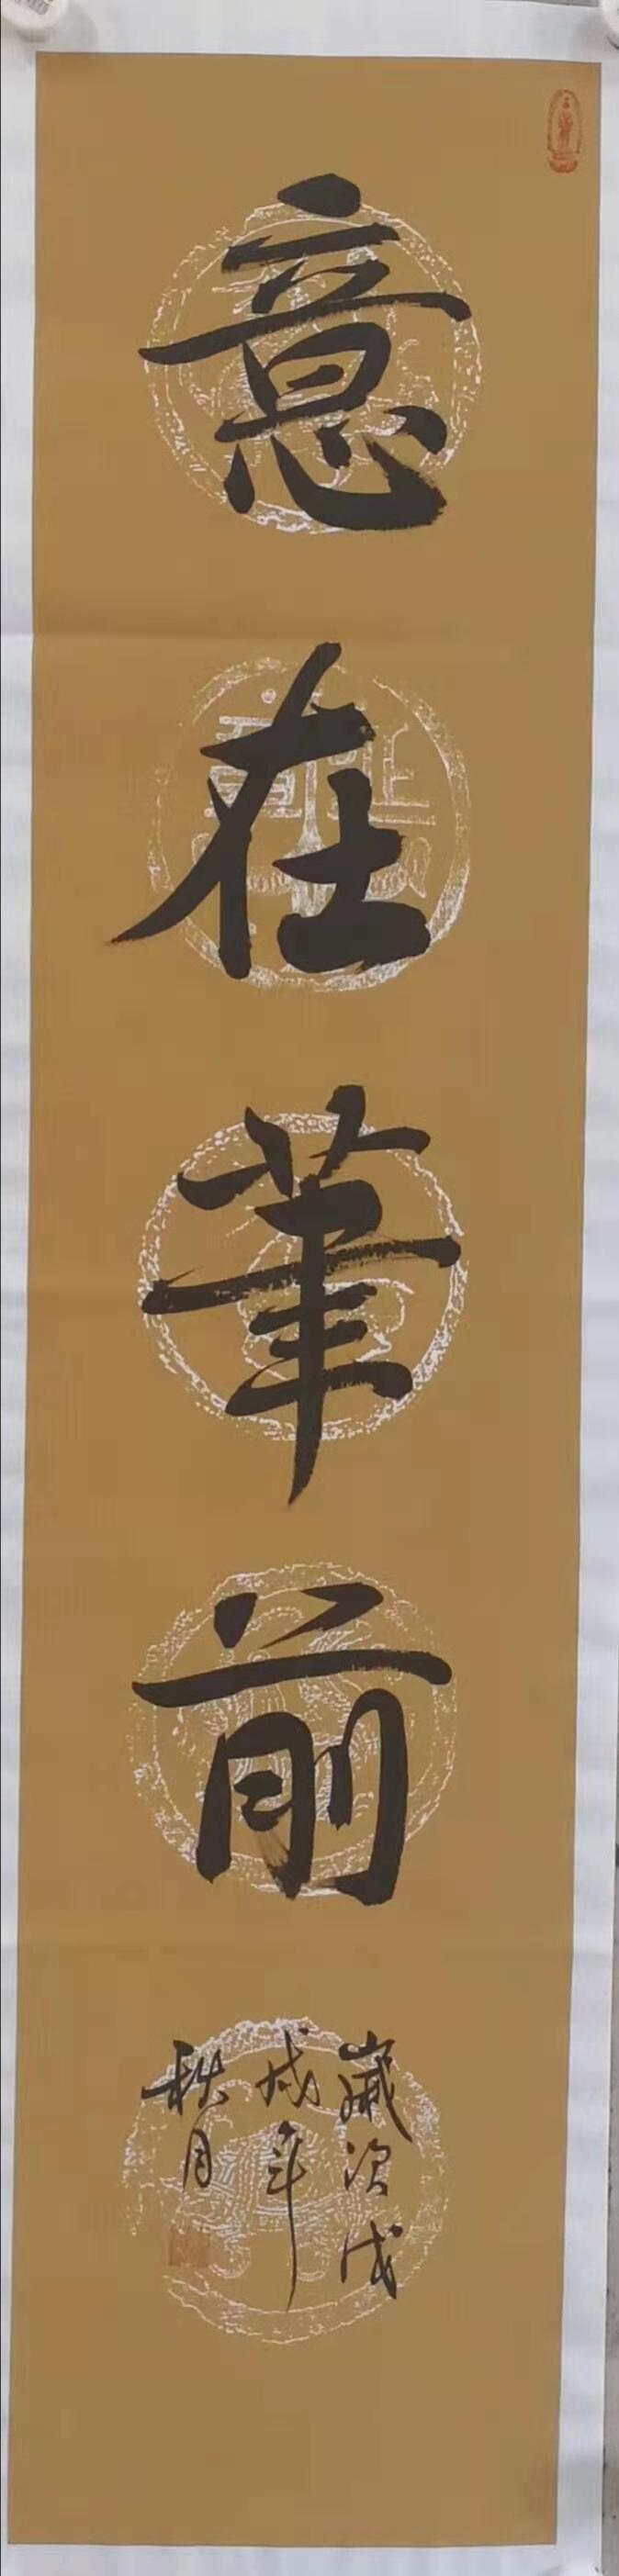 意在筆前
歲次戊
戌年
秋月